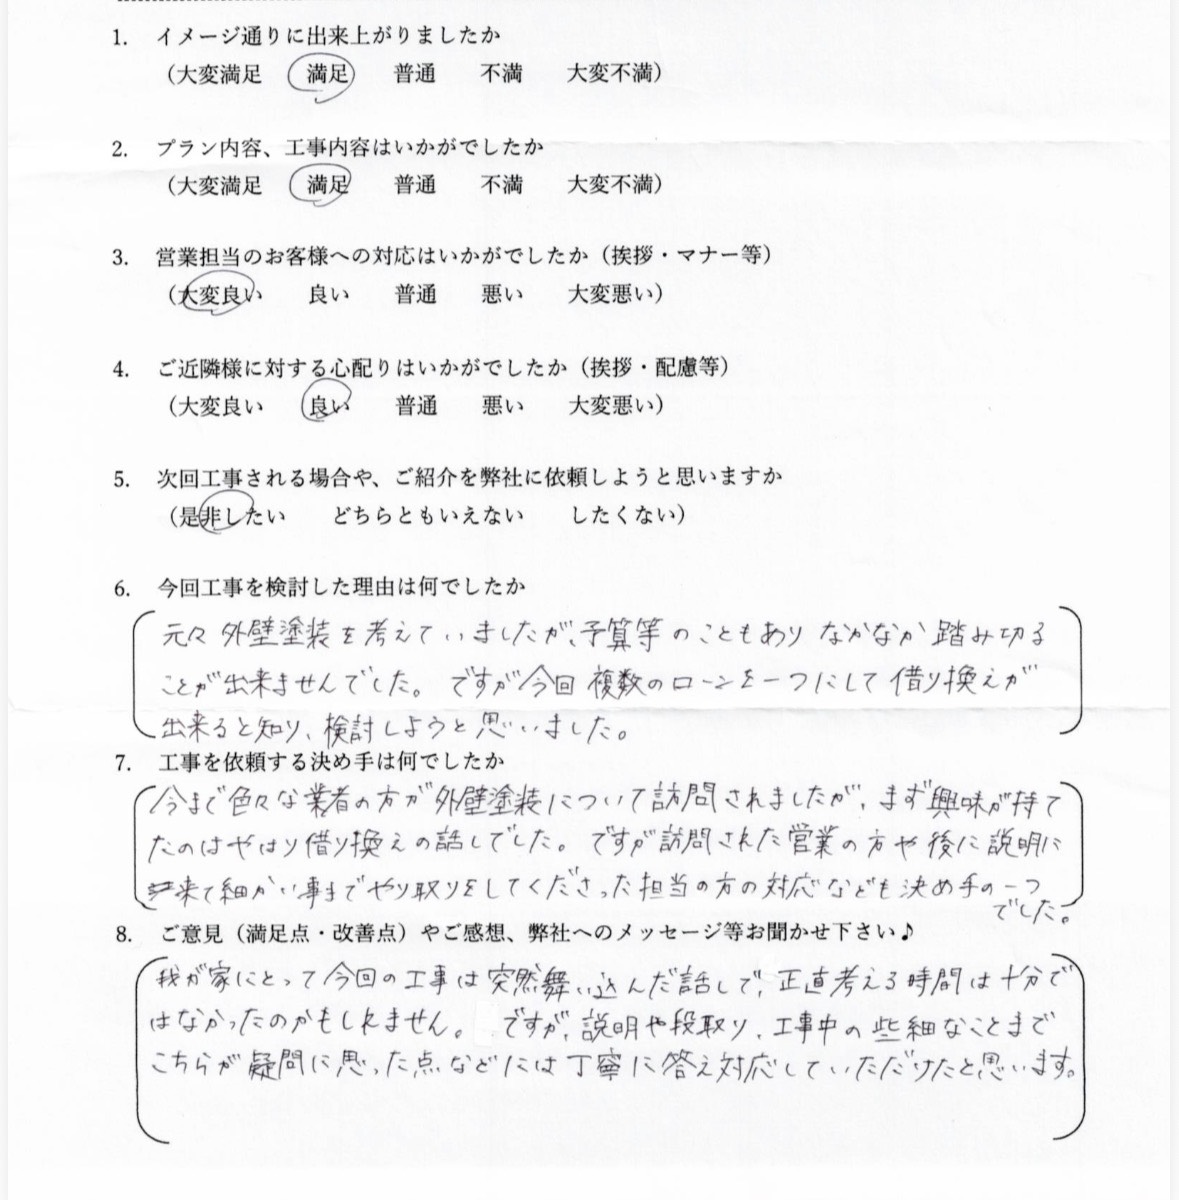 1. イメージ通りに出来上がりましたか
（大変満足 満足 普通 不満 大変不満）
2. プラン内容、工事内容はいかがでしたか
（大変満足 満足 普通 不満 大変不満）
3. 営業担当のお客様への対応はいかがでしたか（挨拶・マナー等）
（大変良い 良い 普通 悪い 大変悪い）
4. ご近隣様に対する心配りはいかがでしたか（挨拶・配慮等）
（大変良い 良い 普通 悪い 大変悪い）
5. 次回工事される場合や、ご紹介を弊社に依頼しようと思いますか
（是非したい どちらともいえない したくない）
6. 今回工事を検討した理由は何でしたか
元々外壁塗装を考えていましたが、予算等のこともありなかなか踏み切る
ことが出来ませんでした。ですが今回複数のローンを一つにして借り換えが
出来ると知り、検討しようと思いました。
7. 工事を依頼する決め手は何でしたか
今まで色々な業者の方が外壁塗装について訪問されましたが、まず興味が持て
たのはやはり借り換えの話しでした。ですが訪問された営業の方や後に説明に
来て細かい事までやり取りをしてくださった担当の方の対応なども決め手の一つ
でした。
8. ご意見（満足点・改善点）やご感想、弊社へのメッセージ等お聞かせ下さい♪
我が家にとって今回の工事は突然舞い込んだ話しで、正直考える時間は十分で
はなかったのかもしれません。ですが、説明や段取り、工事中の些細なことまで
こちらが疑問に思った点などには丁寧に答え対応していただけたと思います。